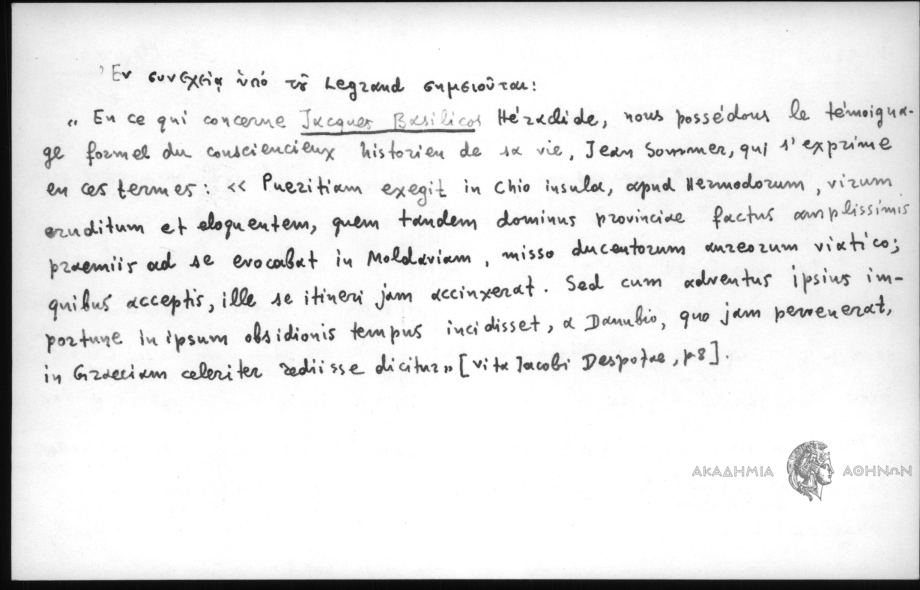 Ἐν συνεχείᾳ ὑπό τοῦ Legrand σημειοῦται:
„ En ce qui concerne Jacques Basilicos Héraclide, nous possédons le témoigna-
ge formel du consciencieux historien de sa vie, Jean Sommer, qui s'exprime
en ces termes: << Pueritiam exegit in Chio insula, apud Hermodorum, virum
eruditum et eloquentem, quem tandem dominus provinciae factus amplissimis
praemiis ad se evocabat in Moldaviam, misso ducentorum aureorum viatico;
quibus acceptis, ille se itineri jam accinxerat. Sed cum adventus ipsius im-
portune in ipsum obsidionis tempus incidisset, a Danubio, quo jam pervenerat,
in Graeciam celeriter rediisse dicitur» [vita Jacobi Despotae, p8].
ΑΚΑΔΗΜΙΑ ΑΘΗΝΩΝ